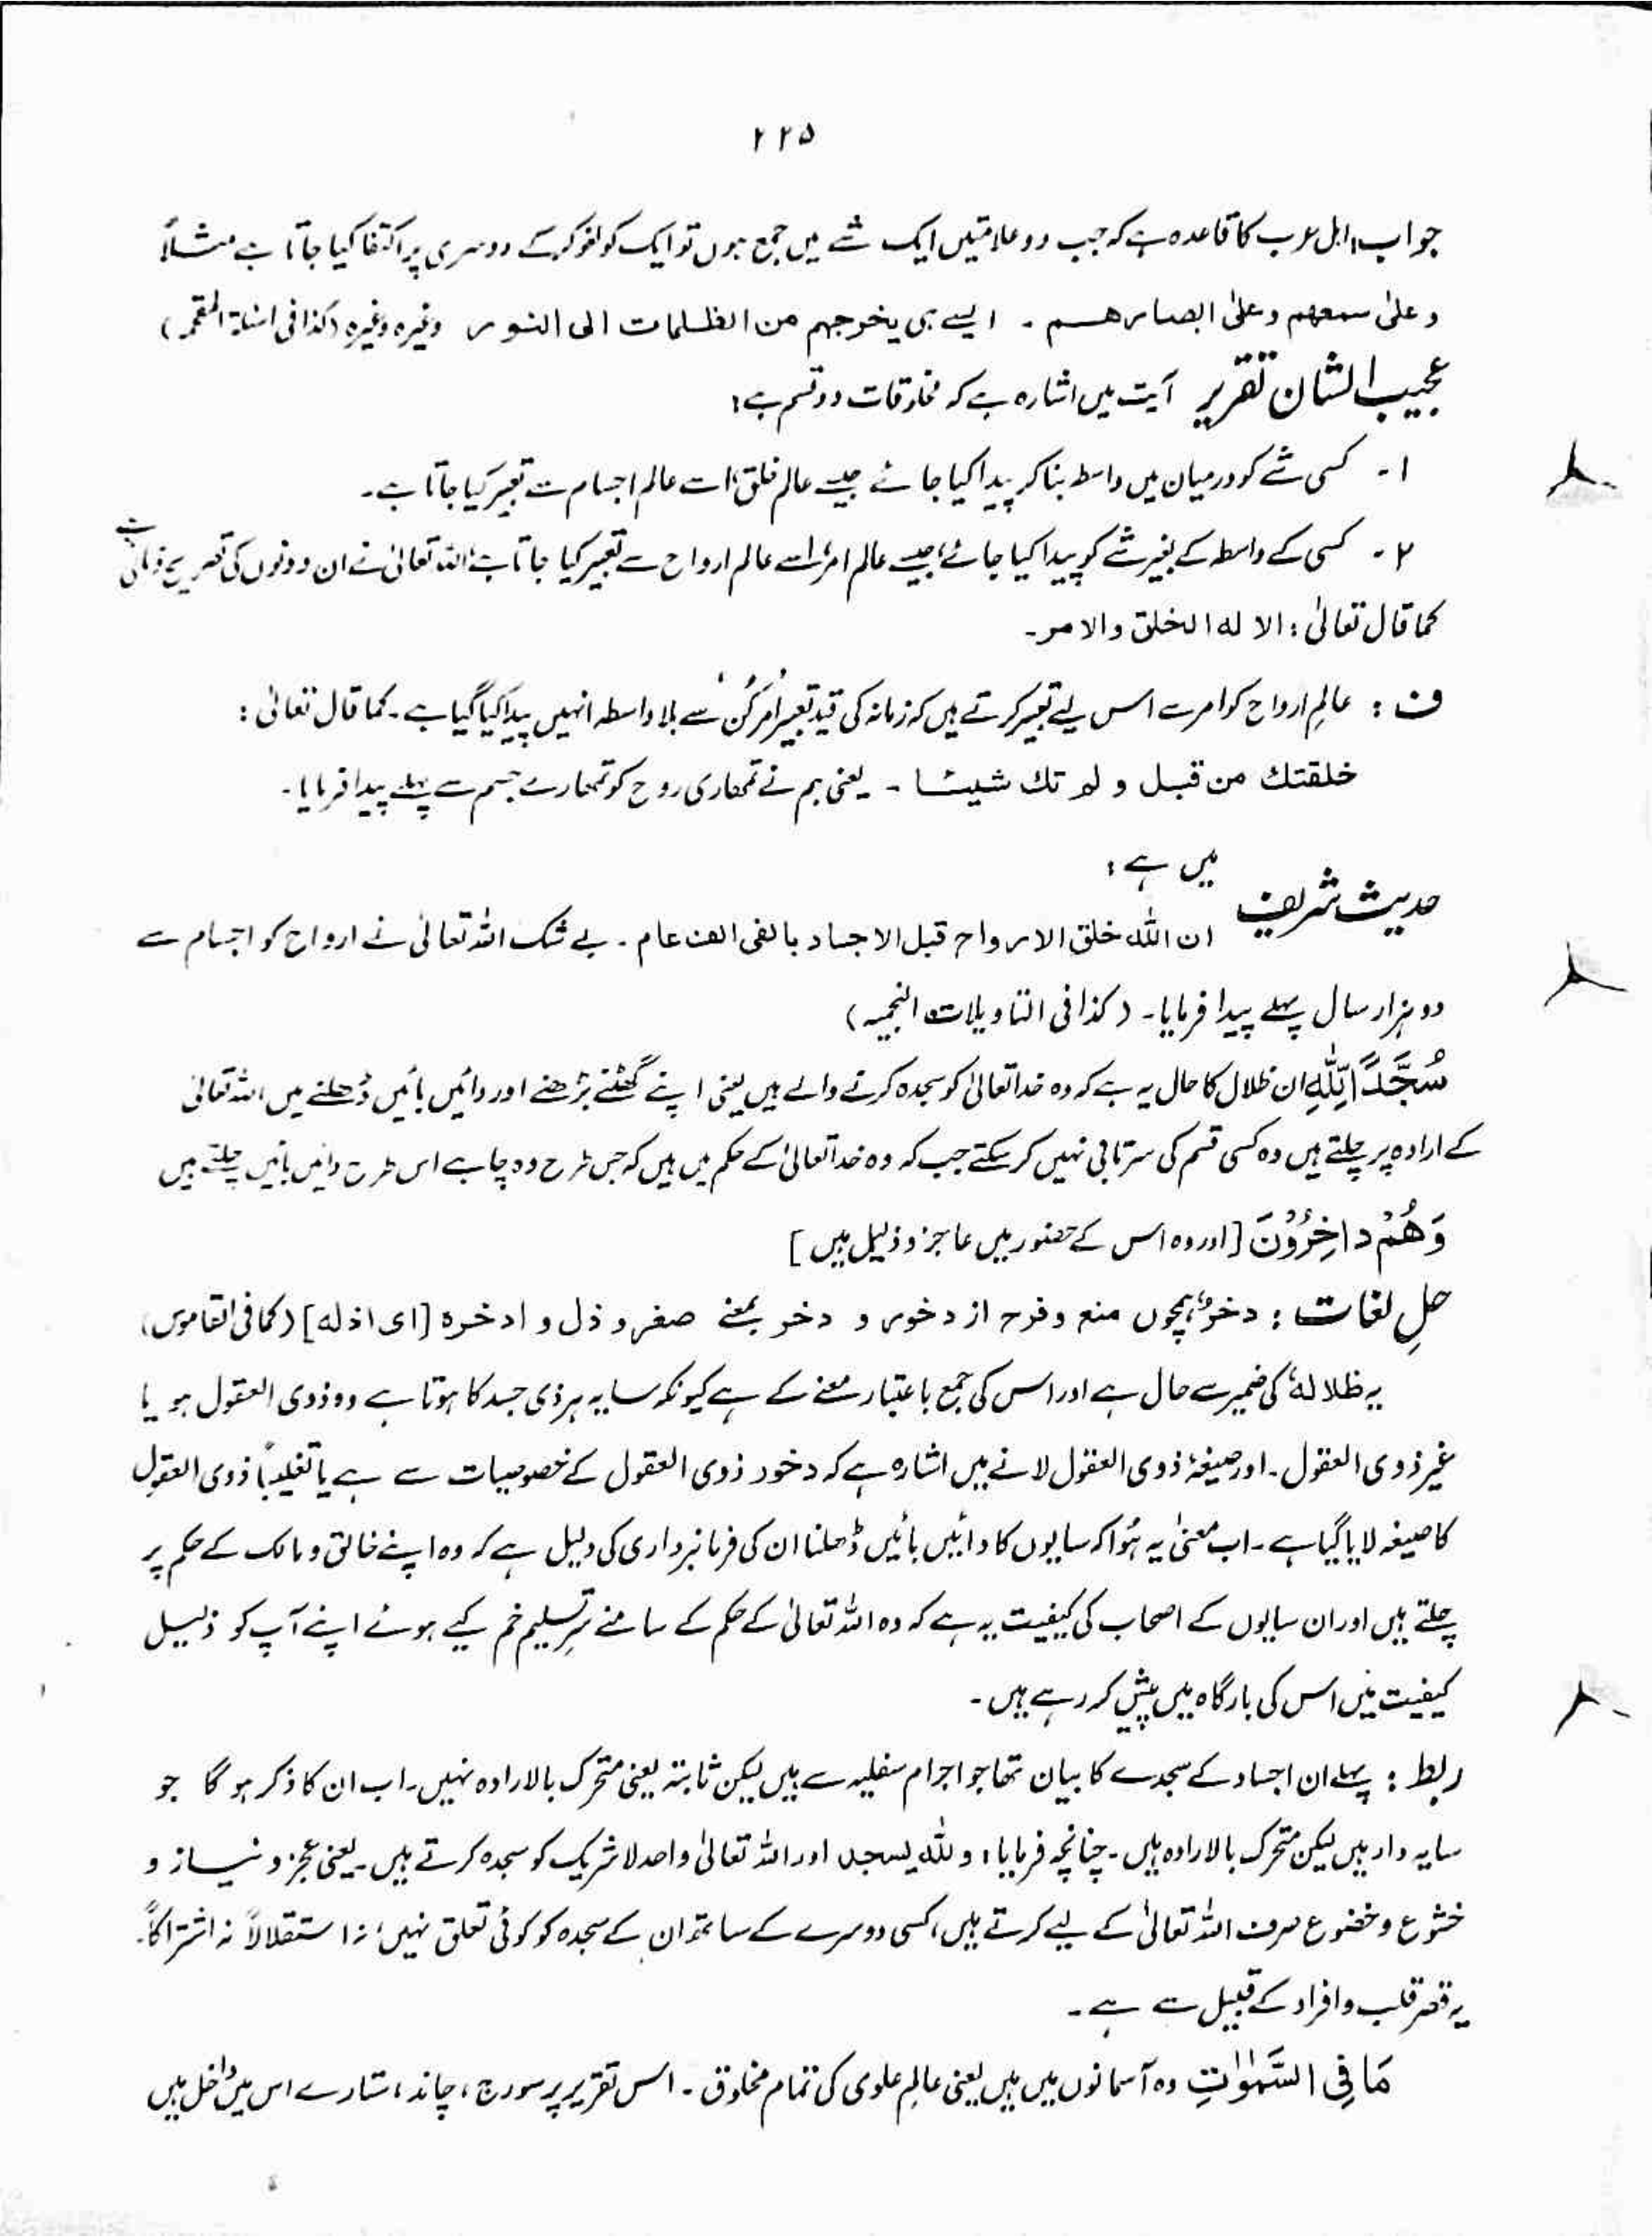 ۲۲۵
جواب: اہل عرب کا قاعدہ ہے کہ جب دو علامتیں ایک شے میں جمع ہوں تو ایک کو لغو کر کے دوسری پر اکتفا کیا جاتا ہے مثلاً
وعلىٰ سمعهم وعلىٰ ابصارهم ۔ ایسے ہی یخرجهم من الظلمات الى النور وغیرہ وغیرہ (کذا فی اسئلۃ المقحمہ)
عجیب الشان تقریر آیت میں اشارہ ہے کہ مخلوقات دو قسم ہے:
۱۔ کسی شے کو درمیان میں واسطہ بنا کر پیدا کیا جائے جیسے عالم خلق، اسے عالم اجسام سے تعبیر کیا جاتا ہے۔
۲۔ کسی کے واسطہ کے بغیر شے کو پیدا کیا جائے، جیسے عالم امر، اسے عالم ارواح سے تعبیر کیا جاتا ہے، اللہ تعالیٰ نے ان دونوں کی تصریح فرمائی ہے
کما قال تعالیٰ: الا له الخلق والامر۔
ف : عالمِ ارواح کو امر سے اس لیے تعبیر کرتے ہیں کہ زمانہ کی قید بغیر اَمر کُن سے بلا واسطہ انہیں پیدا کیا گیا ہے۔ کما قال تعالیٰ :
خلقتك من قبل ولم تك شیئا ۔ یعنی ہم نے تمھاری روح کو تمھارے جسم سے پہلے پیدا فرمایا۔
حدیث شریف میں ہے :
ان اللّٰه خلق الارواح قبل الاجساد بالفی الف عام ۔ بے شک اللہ تعالیٰ نے ارواح کو اجسام سے
دو ہزار سال پہلے پیدا فرمایا۔ (کذا فی التاویلات النجمیہ)
سُجَّدًا لِّلّٰهِ ان ظلال کا حال یہ ہے کہ وہ خدا تعالیٰ کو سجدہ کرنے والے ہیں یعنی اپنے گھٹنے بڑھنے اور دائیں بائیں ڈھلنے میں اللہ تعالیٰ
کے ارادہ پر چلتے ہیں وہ کسی قسم کی سرتابی نہیں کر سکتے جب کہ وہ خدا تعالیٰ کے حکم میں ہیں کہ جس طرح وہ چاہے اس طرح دائیں بائیں چلتے ہیں
وَهُمْ دٰاخِرُوْنَ [اور وہ اس کے حضور میں عاجز و ذلیل ہیں]
حلِ لغات : دخر ہمچوں منع و فرح از دخور و دخر بمعنے صغر و ذل و ادخرہ [ای اذله] (کما فی القاموس)
یہ ظلالهٗ کی ضمیر سے حال ہے اور اس کی جمع باعتبار معنے کے ہے کیونکہ سایہ ہر ذی جسد کا ہوتا ہے وہ ذوی العقول ہو یا
غیر ذوی العقول۔ اور صیغۂ ذوی العقول لانے میں اشارہ ہے کہ دخور ذوی العقول کے خصوصیات سے ہے یا تغلیباً ذوی العقول
کا صیغہ لایا گیا ہے۔ اب معنیٰ یہ ہُوا کہ سایوں کا دائیں بائیں ڈھلنا ان کی فرمانبرداری کی دلیل ہے کہ وہ اپنے خالق و مالک کے حکم پر
چلتے ہیں اور ان سایوں کے اصحاب کی کیفیت یہ ہے کہ وہ اللہ تعالیٰ کے حکم کے سامنے سرِ تسلیم خم کیے ہوئے اپنے آپ کو ذلیل
کیفیت میں اس کی بارگاہ میں پیش کر رہے ہیں۔
ربط : پہلے ان اجساد کے سجدے کا بیان تھا جو اجرام سفلیہ سے ہیں لیکن ثابتہ یعنی متحرک بالارادہ نہیں۔ اب ان کا ذکر ہوگا جو
سایہ دار ہیں لیکن متحرک بالارادہ ہیں۔ چنانچہ فرمایا: وللّٰه یسجد اور اللہ تعالیٰ واحد لا شریک کو سجدہ کرتے ہیں۔ یعنی عجز و نیاز و
خشوع و خضوع صرف اللہ تعالیٰ کے لیے کرتے ہیں، کسی دوسرے کے ساتھ ان کے سجدہ کو کوئی تعلق نہیں، نہ استقلالاً نہ اشتراکاً۔
یہ قصر قلب و افراد کے قبیل سے ہے۔
مَا فِی السَّمٰوٰتِ وہ آسمانوں میں ہیں یعنی عالمِ علوی کی تمام مخلوق۔ اس تقریر پر سورج، چاند، ستارے اس میں داخل ہیں